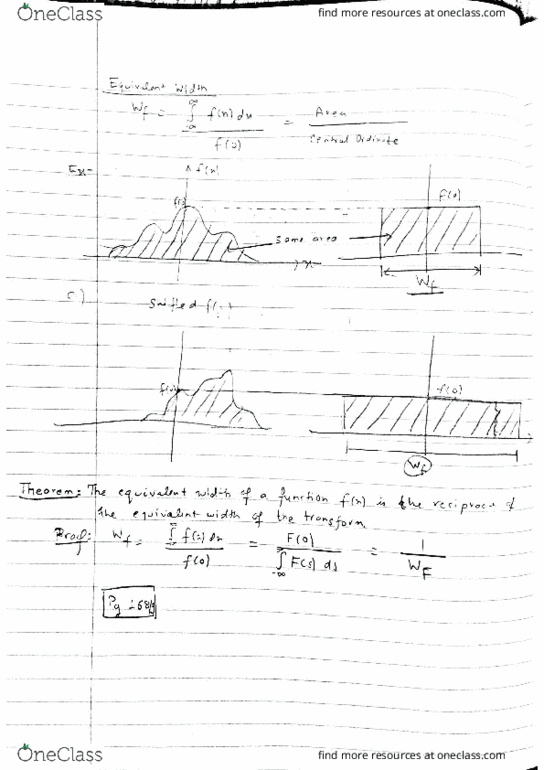 OneClass find more resources at oneclass.com
Equivalent Width
W_f = ∫_{-∞}^{∞} f(x) dx / f(0) = Area / Central Ordinate
Ex- f(x)
f(0) f(0)
same area
x
W_f
Shifted f(
f(0) f(0)
W_f
Theorem: The equivalent width of a function f(x) is the reciprocal of
the equivalent width of the transform
Proof: W_f = ∫_{-∞}^{∞} f(x) dx / f(0) = F(0) / ∫_{-∞}^{∞} F(s) ds = 1 / W_F
Pg
OneClass find more resources at oneclass.com